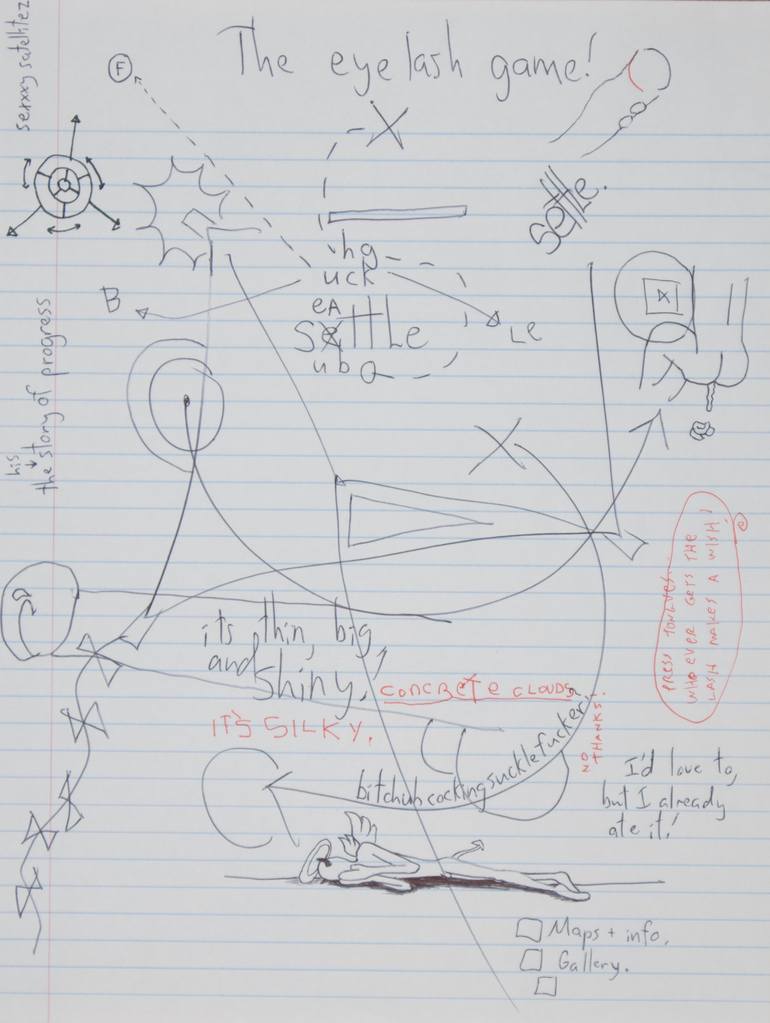 serxxy satellitez
The eyelash game!
F
Settle.
B
uck
eA
Settle
Le
ub
his
the story of progress
PRESS TONGUES
WHO EVER GETS THE
LASH MAKES A WISH!
its thin, big
and
shiny.
CONCRETE CLOUDS
IT'S SILKY.
NO THANKS.
bitchubcockingsucklefucker!
I'd love to,
but I already
ate it!
Maps + info.
Gallery.